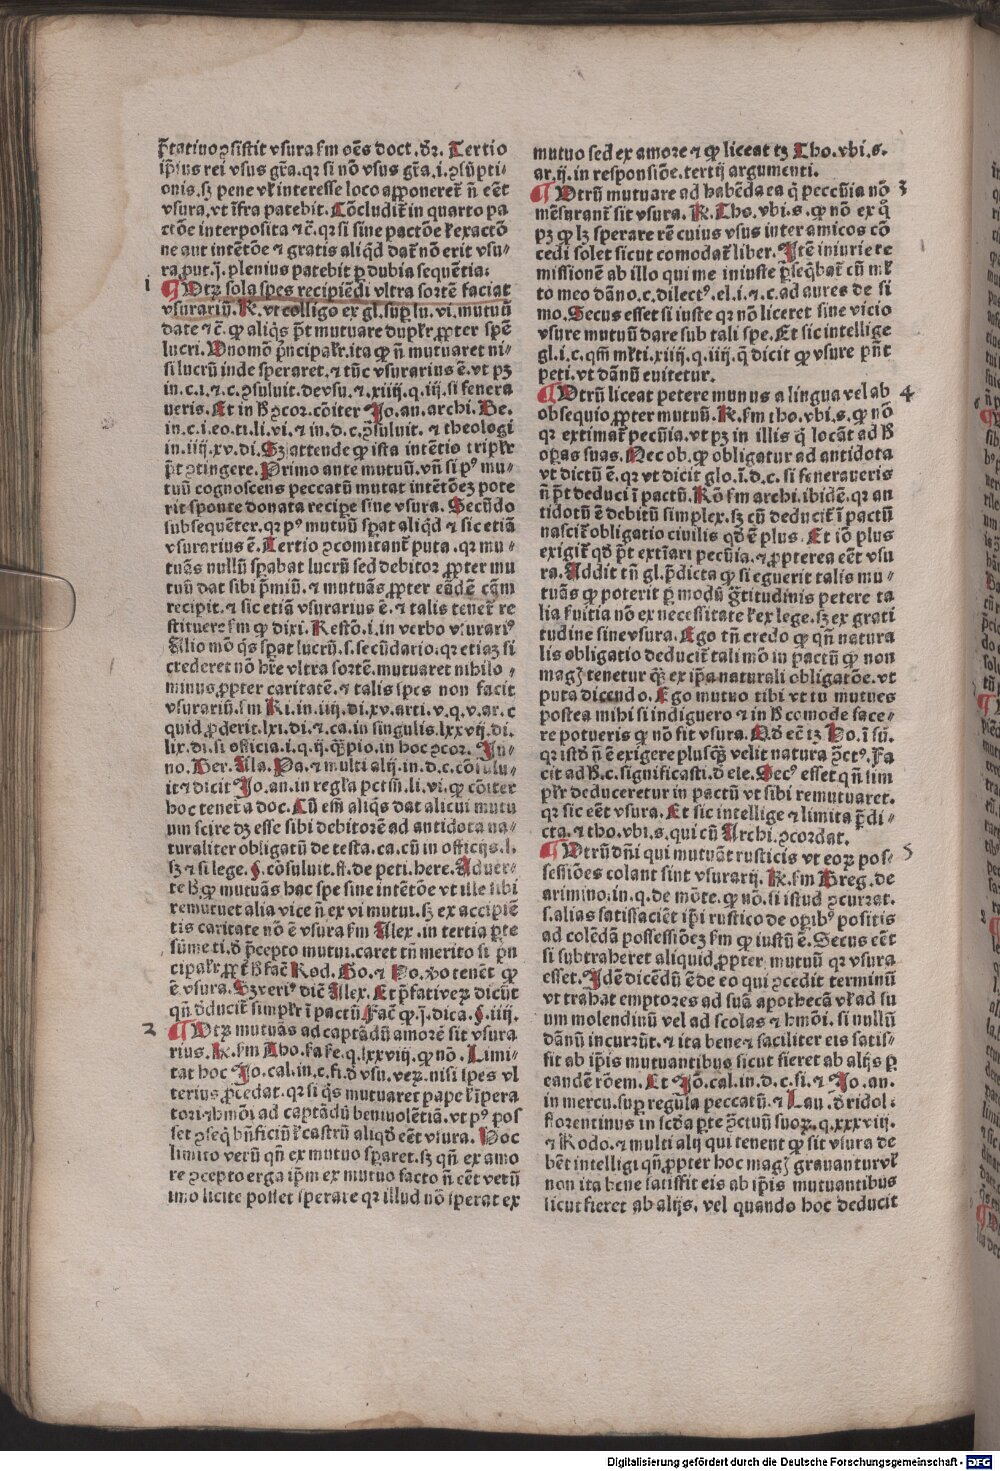 p̄tatiuo ꝯsistit vsura ẜm oēs doct. dr̄. Tertio
ip̄ius rei vsus gr̄a. qꝛ si nō vsus gr̄a. i. ꝯsūpti-
onis. sꝫ pene vl̓ interesse loco apponeret̄ n̄ eēt
vsura. vt īfra patebit. Cōcludit̄ in quarto pa
ctōe interposita ⁊ c̄. qꝛ si sine pactōe l̓ exactō
ne aut intētōe ⁊ gratis aliqd̄ dat̄ nō erit vsu-
ra. put. j. plenius patebit ꝑ dubia sequētia:
1 ¶ Vtrꝫ sola spes recipiēdi vltra sortē faciat
vsurariū. R̄. vt colligo ex gl. suꝑ lu. vi. mutuū
date ⁊ c̄. ꝙ aliqs p̄t mutuare duplr̄ ꝓpter spē
lucri. Vno mō p̄ncipalr̄. ita ꝙ n̄ mutuaret ni-
si lucrū inde speraret. ⁊ tūc vsurarius ē. vt pꝫ
in. c. i. ⁊ c. ꝯsuluit. de vsu. ⁊ xiiij. q. iij. si fenera
ueris. Et in h̄ ꝯcor. cōiter Jo. an. archi. Ge.
in. c. i. eo. ti. li. vi. ⁊ in. d. c. ꝯsuluit. ⁊ theologi
in. iiij. xv. di. Sꝫ attende ꝙ ista intētio triplr̄
p̄t ꝯtingere. Primo ante mutuū. vn̄ si pꝰ mu-
tuū cognoscens peccatū mutat intētōeꝫ pote
rit sponte donata recipe sine vsura. Secūdo
subsequēter. qꝛ pꝰ mutuū sꝑat aliqd̄ ⁊ sic etiā
vsurarius ē. Tertio ꝯcomitant̄ puta. qꝛ mu-
tuās nullū sꝑabat lucrū sed debitor ꝓpter mu
tuū dat sibi p̄miū. ⁊ mutuās ꝓpter eādē cām
recipit. ⁊ sic etiā vsurarius ē. ⁊ talis tenet̄ re
stituere ẜm ꝙ dixi. Restō. i. in verbo vsurariꝰ
Alio mō qs sꝑat lucrū. s. secūdario. qꝛ etiaꝫ si
crederet nō hr̄e vltra sortē. mutuaret nihilo-
minus ꝓpter caritatē. ⁊ talis spes non facit
vsurariū. ẜm Ri. in. iiij. di. xv. arti. v. q. v. ar. c
quid ꝓderit. lxi. di. ⁊ ca. in singulis. lxxvij. di.
lix. di. si officia. i. q. ij. q̄ꝫpio. in hoc ꝯcor. In-
no. Ber. Ala. Pa. ⁊ multi alij. in. d. c. cōsulu-
it ⁊ dicit Jo. an. in regl̄a pctm̄. li. vi. ꝙ cōiter
hoc tenet̄ a doc. Cū em̄ aliqs dat alicui mutu
um scire dꝫ esse sibi debitorē ad antidota na-
turaliter obligatū de testa. ca. cū in officijs. l.
sꝫ ⁊ si lege. §. cōsuluit. ff. de peti. here. Aduer-
te h̄. ꝙ mutuās hac spe sine intētōe vt ille sibi
remutuet alia vice n̄ ex vi mutui. sꝫ ex accipiē
tis caritate nō ē vsura ẜm Alex. in tertia ꝑte
sūme ti. d̄ p̄cepto mutui. caret tn̄ merito si p̄n
cipalr̄ ꝓpt h̄ faē Rod. Go. ⁊ Po. vo tenēt ꝙ
ē vsura. Sꝫ veriꝰ dic̄ Alex. Et p̄fati verꝫ dicūt
qn̄ d̄ducit̄ simplr̄ ī pactū Faē ꝙ. j. dica. §. iiij.
2 ¶ Vtrꝫ mutuās ad captādū amorē sit vsura
rius. R̄. ẜm Tho. ẜa ẜe. q. lxxviij. ꝙ nō. Limi-
tat hoc Jo. cal. in. c. fi. d̄ vsu. verꝫ. nisi spes vl
terius ꝓcedat. qꝛ si qs mutuaret pape l̓ īpera
tori. ⁊ hmōi ad captādū beniuolētiā. vt pꝰ pos
set ꝯseq̄ bn̄ficiū l̓ castrū aliqd̄ eēt vsura. Hoc
limito verū qn̄ ex mutuo sꝑaret. sꝫ qn̄ ex amo
re ꝯcepto erga ip̄m ex mutuo facto n̄ eēt verū
imo licite posset sperare qꝛ illud nō sperat ex
mutuo sed ex amore ⁊ ꝙ liceat tꝫ Tho. vbi. s.
ar. ij. in responsiōe. tertij argumenti.
¶ Vtrū mutuare ad habēda ea q̄ peccūia nō 3
mēsurant̄ sit vsura. R̄. Tho. vbi. s. ꝙ nō ex q̄
pꝫ ꝙ lꝫ sperare rē cuius vsus inter amicos cō
cedi solet sicut comodat̄ liber. Itē iniurie re
missionē ab illo qui me iniuste ꝑseq̄bat̄ cū ml̄
to meo dāno. c. dilectꝰ. el. i. ⁊ c. ad aures de si
mo. Secus esset si iuste qꝛ nō liceret sine vicio
vsure mutuū dare sub tali spe. Et sic intellige
gl. i. c. qm̄ ml̄ti. xiiij. q. iiij. q̄ dicit ꝙ vsure pn̄t
peti. vt dānū euitetur.
¶ Vtrū liceat petere munus a lingua vel ab 4
obsequio ꝓpter mutuū. R̄. ẜm tho. vbi. s. ꝙ nō
qꝛ extimat̄ pecūia. vt pꝫ in illis q̄ locāt ad h̄
oꝑas suas. Nec ob. ꝙ obligatur ad antidota
vt dictū ē. qꝛ vt dicit glo. ī. d. c. si feneraueris
n̄ p̄t deduci ī pactū. Rō ẜm archi. ibidē. qꝛ an
tidotū ē debitū simplex. sꝫ cū deducit̄ ī pactū
nascit̄ obligatio ciuilis qd̄ ē plus. Et iō plus
exigit̄ qd̄ p̄t extīari pecūia. ⁊ ꝓpterea eēt vsu
ra. Addit tn̄ gl. p̄dicta ꝙ si eguerit talis mu-
tuās ꝙ poterit ꝑ modū gr̄titudinis petere ta
lia ẜuitia nō ex necessitate l̓ ex lege. sꝫ ex grati
tudine sine vsura. Ego tn̄ credo ꝙ qn̄ natura
lis obligatio deducit̄ tali mō in pactū ꝙ non
magꝭ tenetur q̄ꝫ ex ip̄a naturali obligatōe. vt
puta dicendo. Ego mutuo tibi vt tu mutues
postea mihi si indiguero ⁊ in h̄ comode face-
re potueris ꝙ nō fit vsura. Ad̄ eē tꝫ Ho. ī sū.
qꝛ istd̄ n̄ ē exigere plusq̄ꝫ velit natura ꝯctꝰ. Fa
cit ad h̄. c. significasti. d̄ ele. Secꝰ esset qn̄ sim
plr̄ deduceretur in pactū vt sibi remutuaret.
qꝛ sic eēt vsura. Et sic intellige ⁊ limita p̄di-
cta. ⁊ tho. vbi. s. qui cū Archi. ꝯcordat.
¶ Vtrū dn̄i qui mutuāt rusticis vt eoꝝ pos- 5
sessiōes colant sint vsurarij. R̄. ẜm Greg. de
arimino. in. q. de mōte. ꝙ nō. si istud ꝯcurrat.
s. alias satisfaciēt ip̄i rustico de oꝑibꝰ positis
ad colēdā possessiōeꝫ ẜm ꝙ iustū ē. Secus eēt
si subtraheret aliquid ꝓpter mutuū qꝛ vsura
esset. Idē dicēdū ē de eo qui ꝯcedit terminū
vt trahat emptores ad suā apothecā vl̓ ad su
um molendinū vel ad scolas ⁊ hmōi. si nullū
dānū incurrūt. ⁊ ita bene ⁊ faciliter eis satis-
fit ab ip̄is mutuantibus sicut fieret ab alijs ꝑ
eandē rōem. Et Jo. cal. in. d. c. si. ⁊ Jo. an.
in mercu. suꝑ regula peccatū. ⁊ Lau. d̄ ridol.
florentinus in scd̄a ꝑte ꝯctuū suoꝝ. q. xxxviij.
⁊ Rodo. ⁊ multi alij qui tenent ꝙ sit vsura de
bēt intelligi qn̄ ꝓpter hoc magꝭ grauantur vl̓
non ita bene satisfit eis ab ip̄is mutuantibus
sicut fieret ab alijs. vel quando hoc deducit
Digitalisierung gefördert durch die Deutsche Forschungsgemeinschaft - DFG